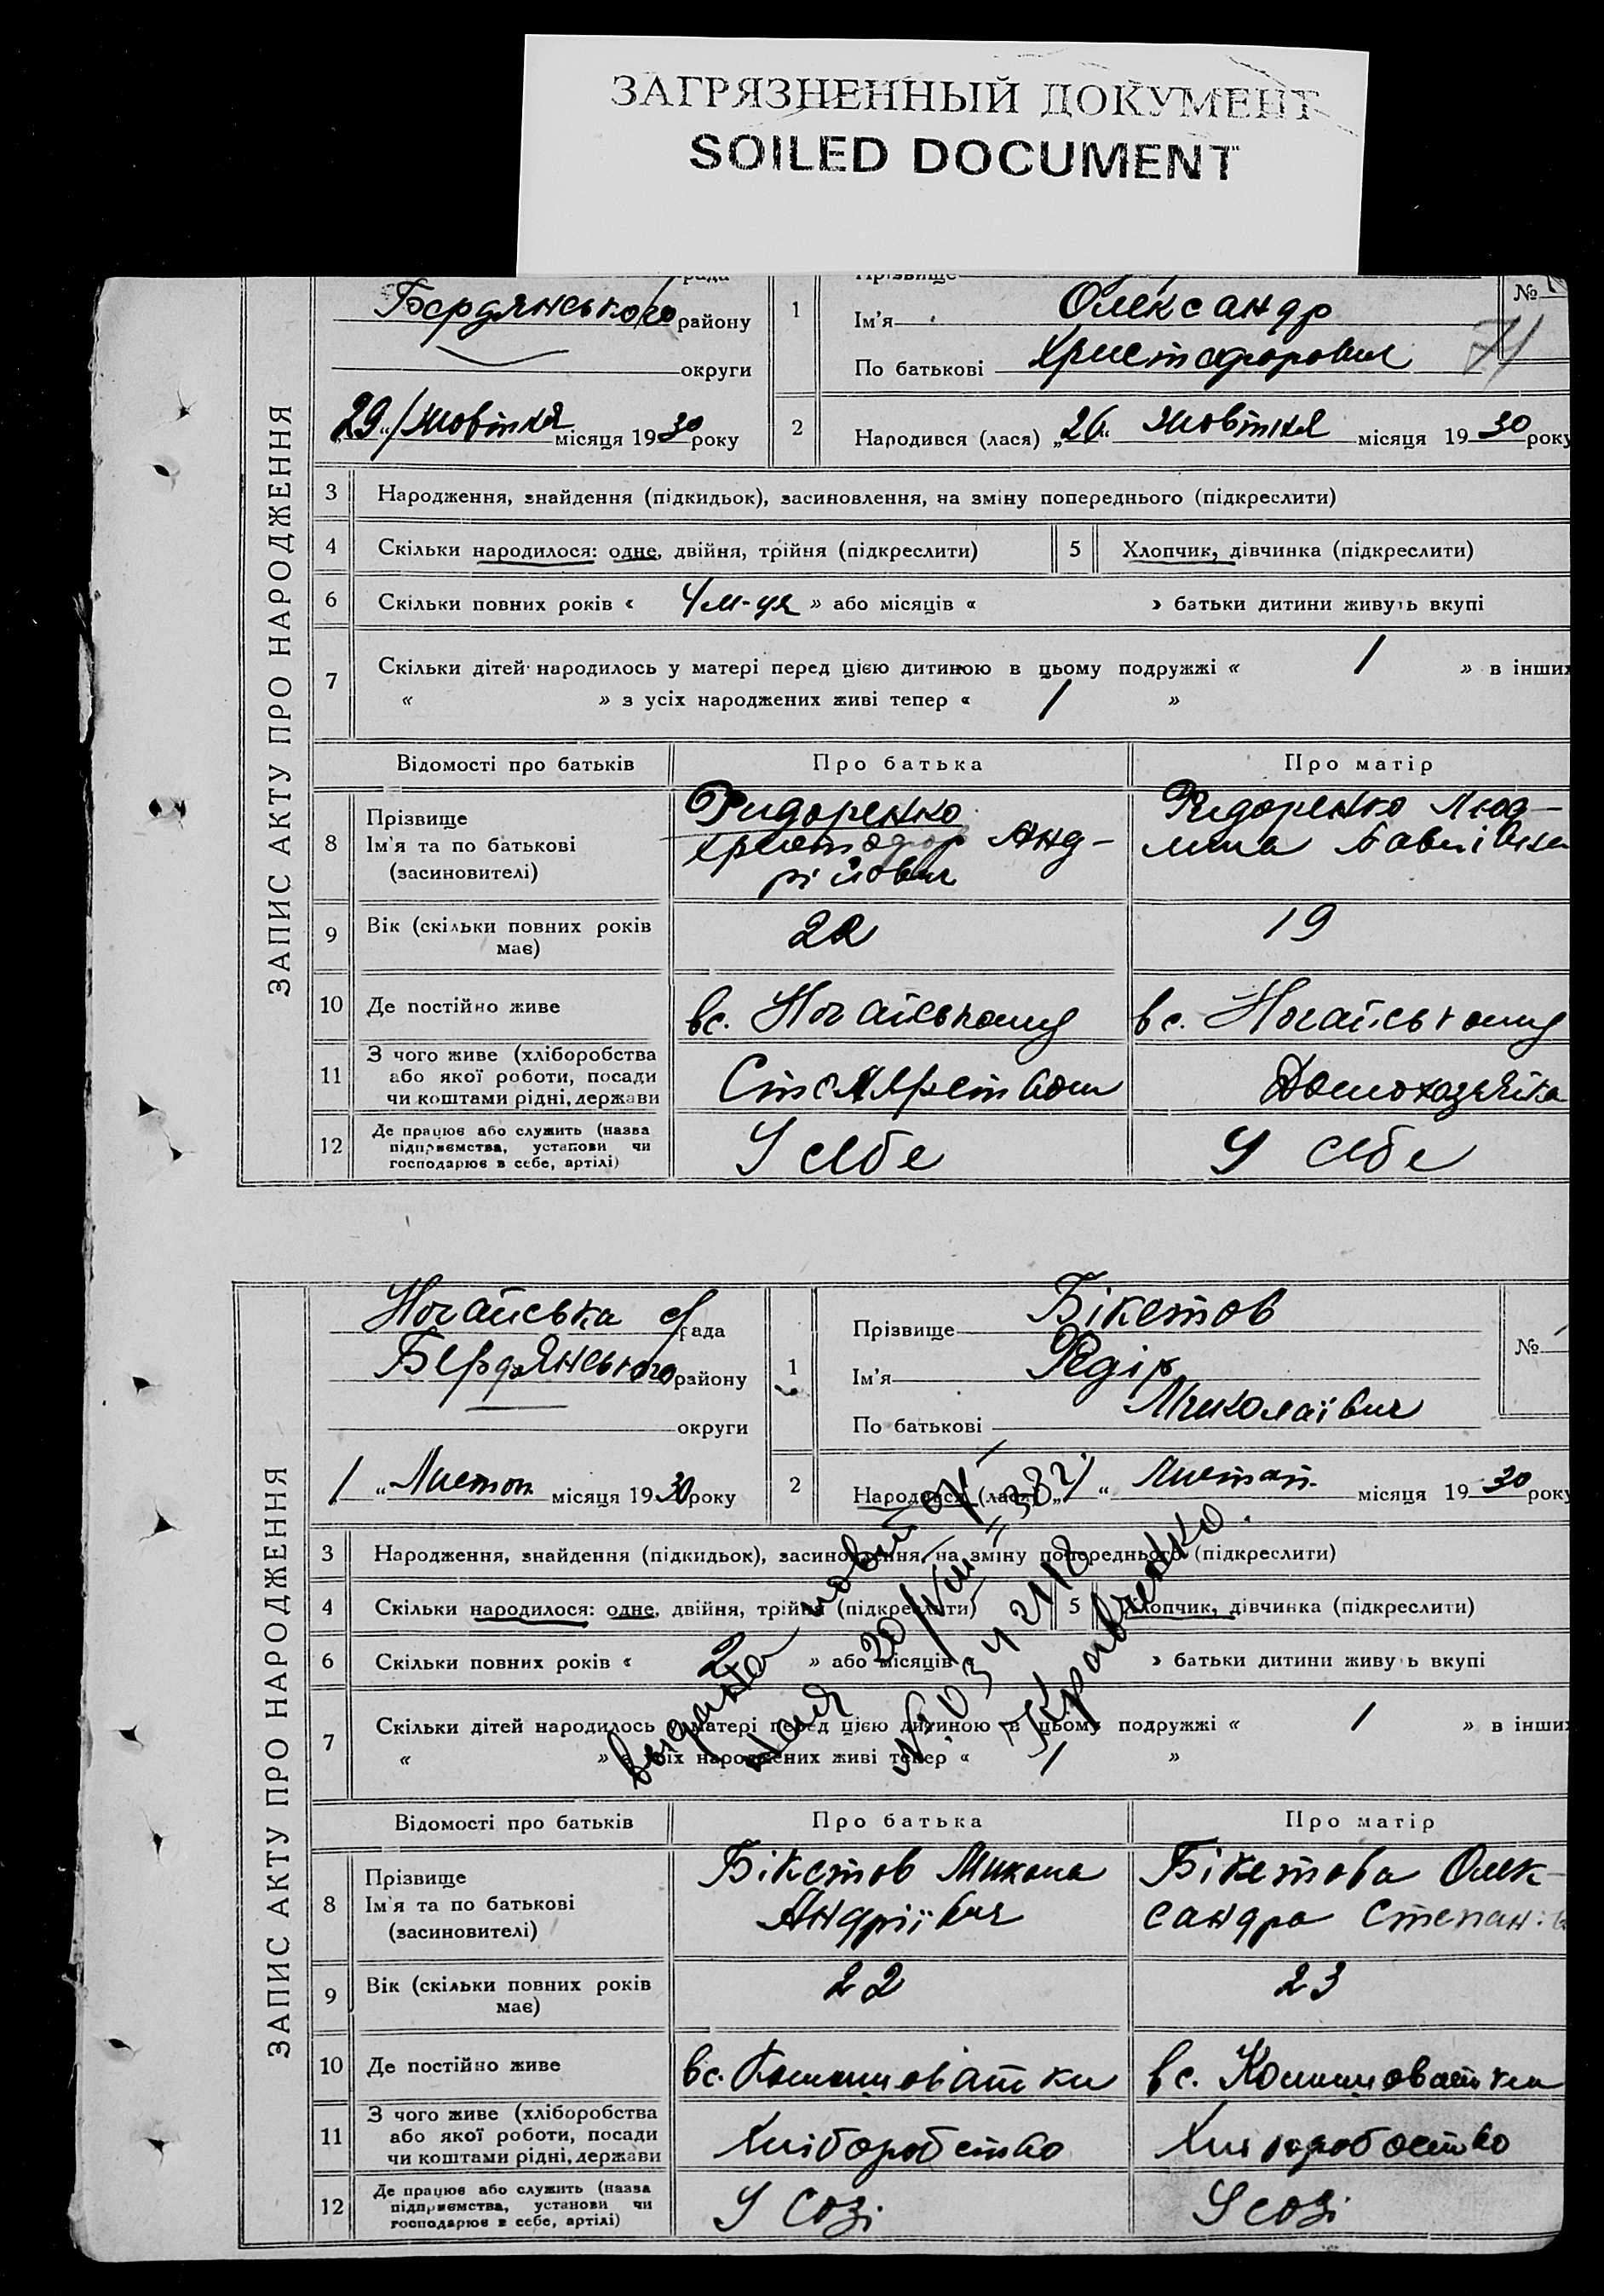 ЗАГРЯЗНЕННЫЙ ДОКУМЕНТ
SOILED DOCUMENT
ЗАПИС АКТУ ПРО НАРОДЖЕННЯ
рада
Бердянського району
округи
29 жовтня місяця 1930 року
1
Прізвище
Ім'я Олександр
По батькові Христофорович
№
71
2 Народився (лася) „26“ жовтня місяця 1930 року
3 Народження, знайдення (підкидьок), засиновлення, на зміну попереднього (підкреслити)
4 Скільки народилося: одне, двійня, трійня (підкреслити) 5 Хлопчик, дівчинка (підкреслити)
6 Скільки повних років « 4 м-ця » або місяців « » батьки дитини живуть вкупі
7 Скільки дітей народилось у матері перед цією дитиною в цьому подружжі « 1 » в інших
« » з усіх народжених живі тепер « 1 »
Відомості про батьків Про батька Про матір
8 Прізвище
Ім'я та по батькові
(засиновителі)
Фидоренко
Христофор Анд-
рійович
Фидоренко Люд-
мила Павлівна
9 Вік (скільки повних років має) 22 19
10 Де постійно живе вс. Ногайському вс. Ногайському
11 З чого живе (хліборобства
або якої роботи, посади
чи коштами рідні, держави
Домохазяйка
12 Де працює або служить (назва
підприємства, установи чи
господарює в себе, артілі)
У себе У себе
ЗАПИС АКТУ ПРО НАРОДЖЕННЯ
Ногайська с/рада
Бердянського району
округи
1 „Листоп. місяця 1930 року
1
Прізвище Бікетов
Ім'я Федір
По батькові Миколаївич
№
2 Народився (лася) „1“ Листоп. місяця 1930 року
3 Народження, знайдення (підкидьок), засиновлення, на зміну попереднього (підкреслити)
4 Скільки народилося: одне, двійня, трійня (підкреслити) 5 Хлопчик, дівчинка (підкреслити)
6 Скільки повних років « 2 » або місяців « » батьки дитини живуть вкупі
7 Скільки дітей народилось у матері перед цією дитиною в цьому подружжі « 1 » в інших
« » з усіх народжених живі тепер « 1 »
Кравченко.
Відомості про батьків Про батька Про матір
8 Прізвище
Ім'я та по батькові
(засиновителі)
Бікетов Микола
Андріївич
Бікетова Олек-
сандра Степанів
9 Вік (скільки повних років має) 22 23
10 Де постійно живе вс. Комишоватки вс. Комишоватки
11 З чого живе (хліборобства
або якої роботи, посади
чи коштами рідні, держави
Хліборобство Хліборобство
12 Де працює або служить (назва
підприємства, установи чи
господарює в себе, артілі)
У созі У созі